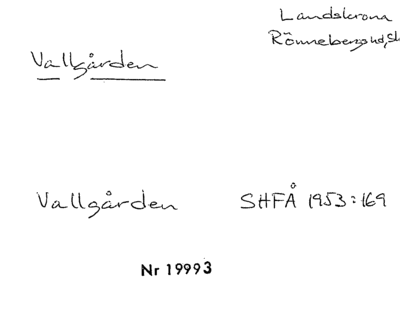 Landskrona
Rönnebergs hd, Sk
Vallgården
Vallgården SHFÅ 1953:169
Nr 19993